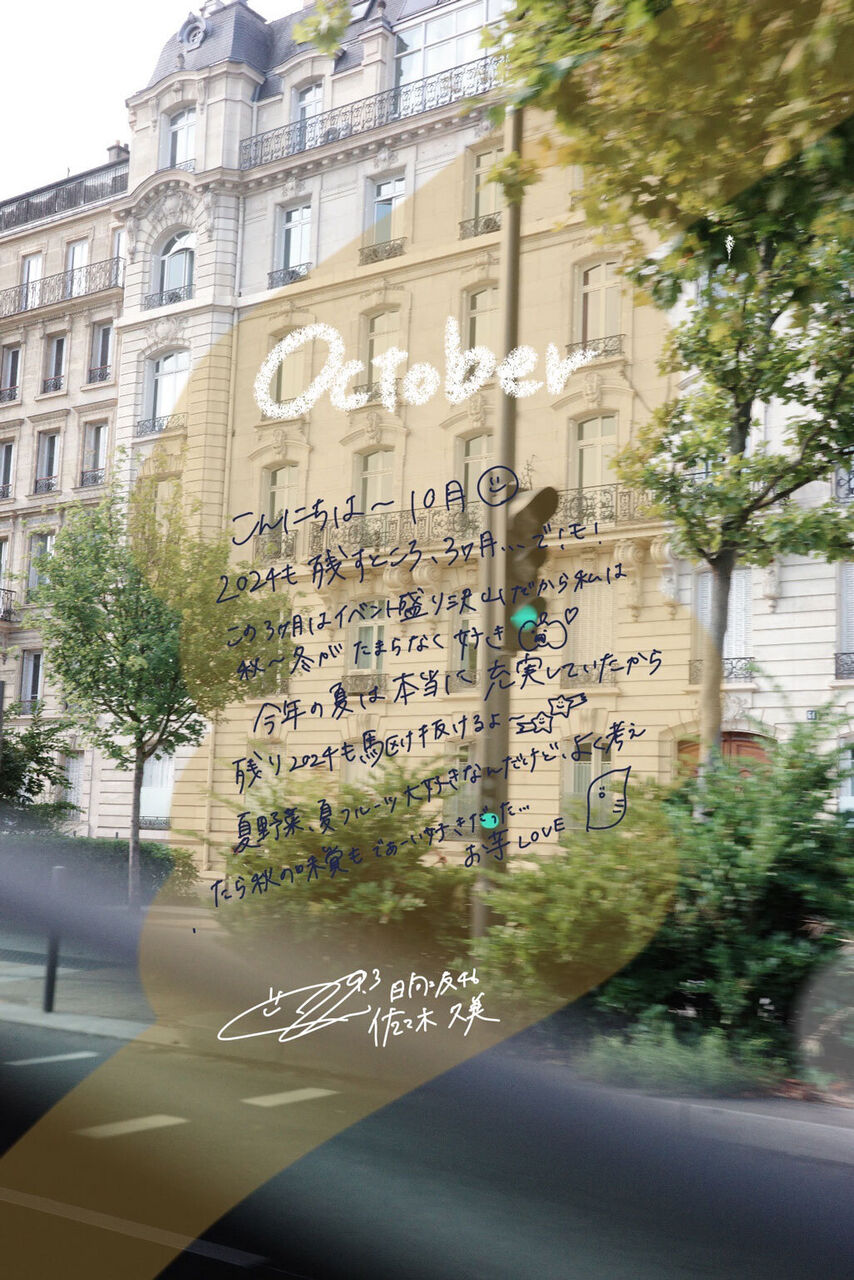 October
こんにちは〜10月
2024も残すところ、3ヶ月...でも!
この3ヶ月はイベント盛り沢山だから私は
秋〜冬がたまらなく好き
今年の夏は本当に充実していたから
残り2024も馬区け抜けるよ〜
夏野菜、夏フルーツ大好きなんだけど よく考え
たら秋の味覚もでぁーい好きだった...
お芋LOVE
日向坂46
佐々木久美